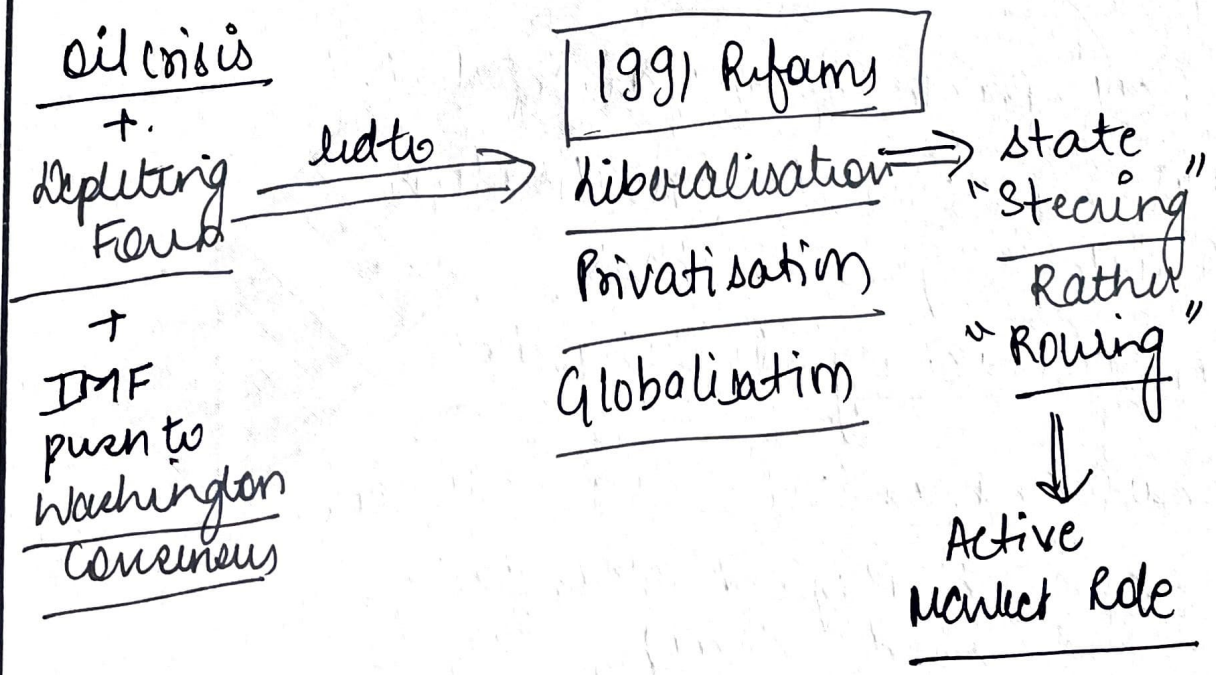 Oil Crisis
+
Depleting
Forex
+
IMF
push to
Washington
Consensus
led to
1991 Reforms
Liberalisation
Privatisation
Globalisation
State
"Steering"
Rather
"Rowing"
Active
Market Role